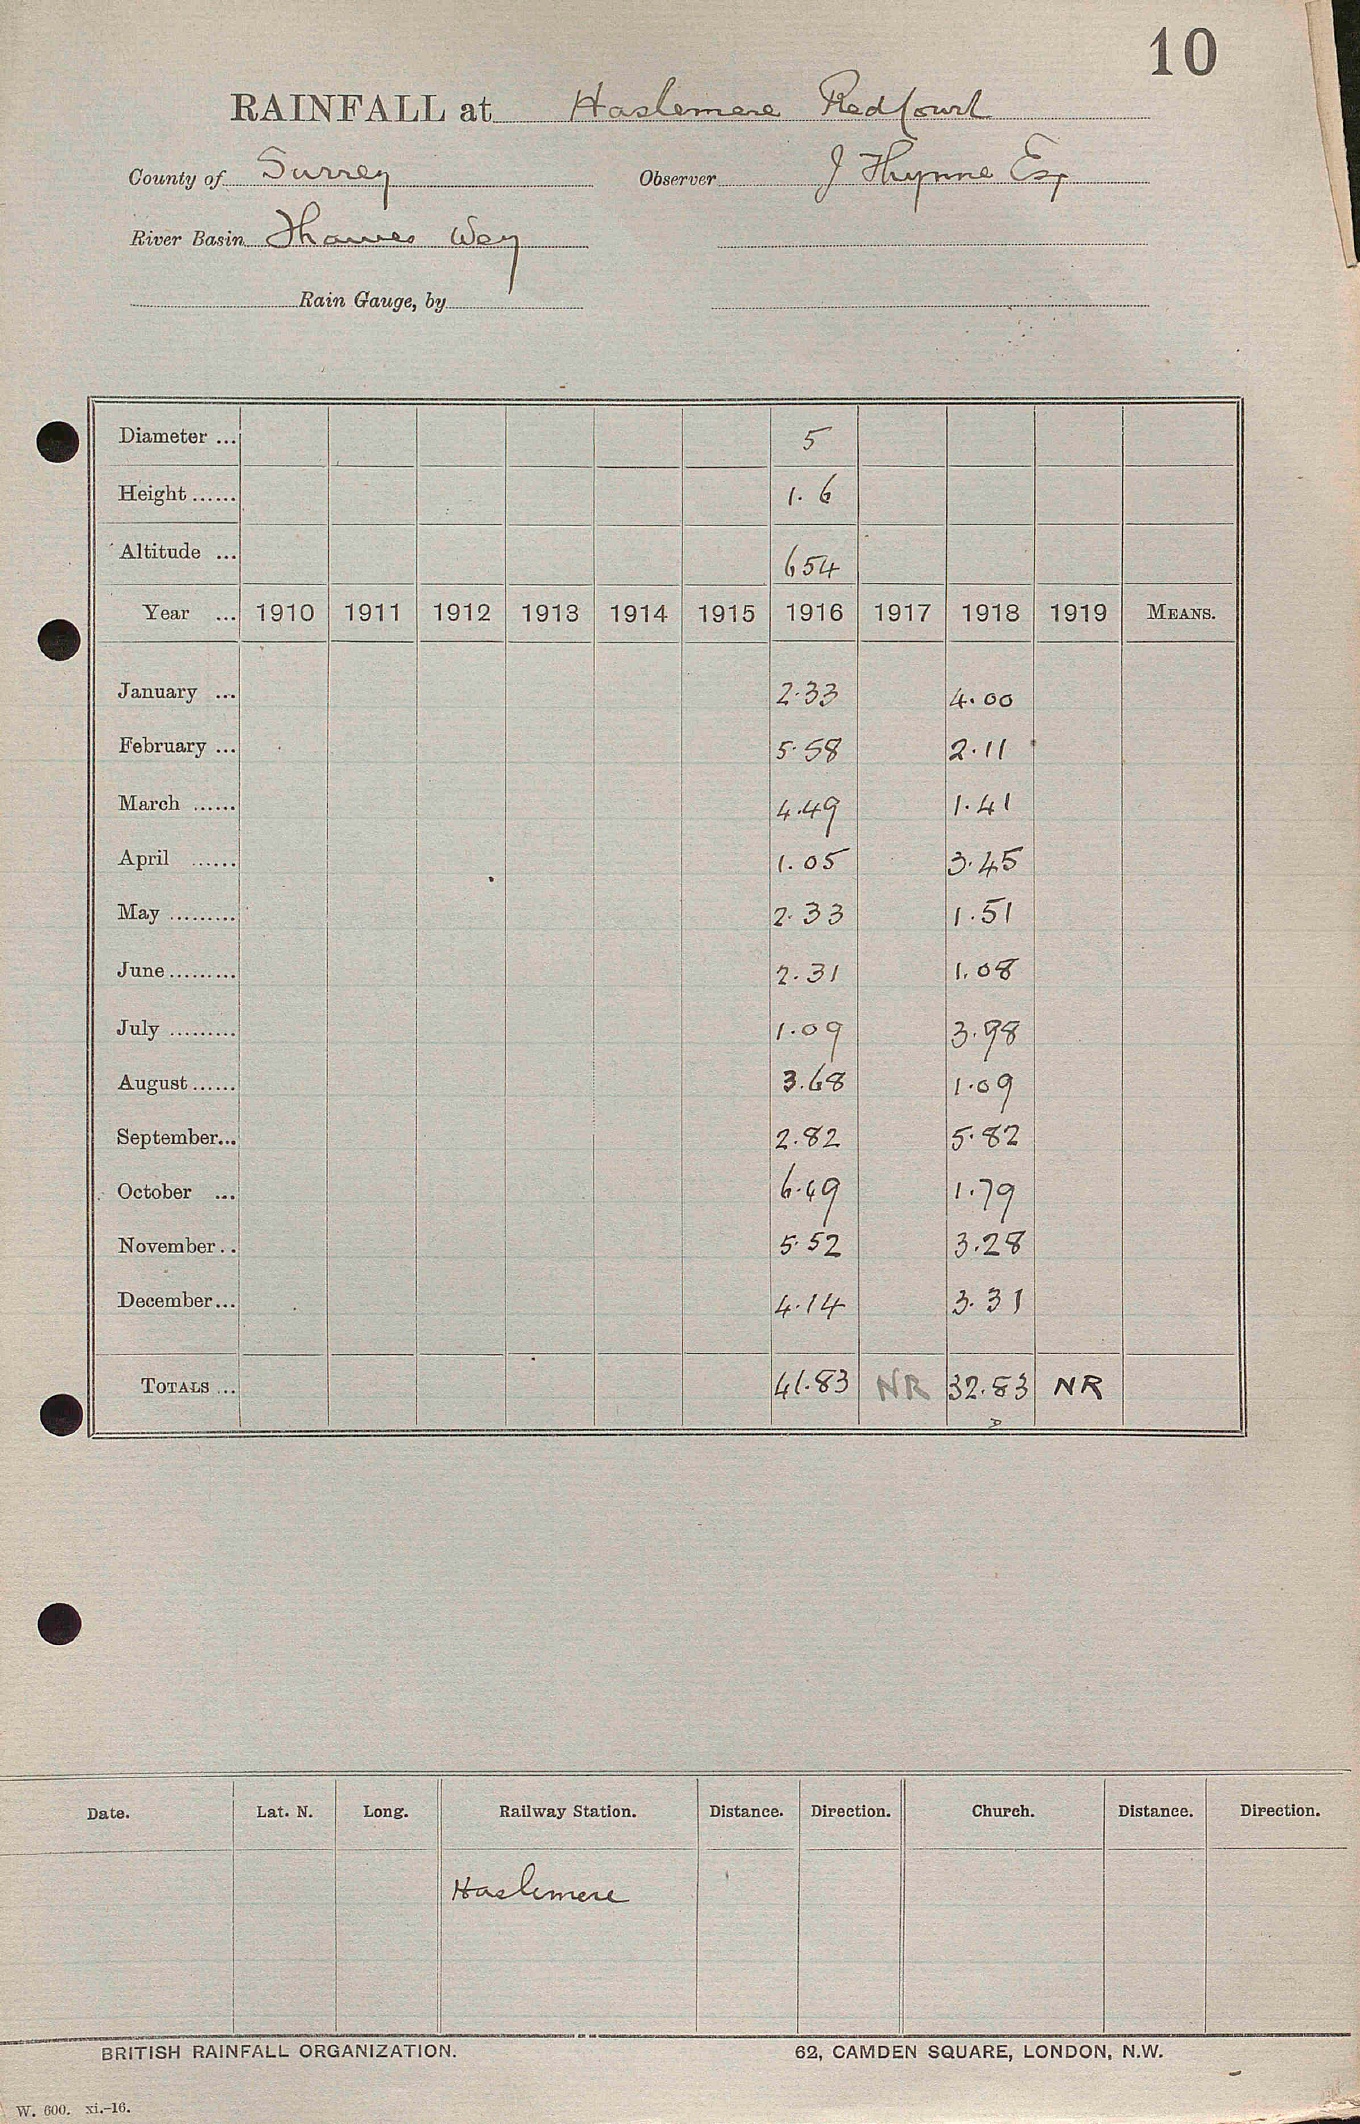 10
RAINFALL at Haslemere Red Court
County of Surrey Observer J Thynne Esq
River Basin Thames Wey
Rain Gauge, by
Diameter ... 5
Height ...... 1.6
Altitude ... 654
Year ... 1910 1911 1912 1913 1914 1915 1916 1917 1918 1919 MEANS.
January ... 2.33 4.00
February ... 5.58 2.11
March ...... 4.49 1.41
April ...... 1.05 3.45
May ......... 2.33 1.51
June ......... 2.31 1.08
July ......... 1.09 3.98
August ...... 3.68 1.09
September... 2.82 5.82
October ... 6.49 1.79
November .. 5.52 3.28
December... 4.14 3.31
TOTALS ... 41.83 NR 32.83 NR
Date. Lat. N. Long. Railway Station. Distance. Direction. Church. Distance. Direction.
Haslemere
BRITISH RAINFALL ORGANIZATION. 62, CAMDEN SQUARE, LONDON, N.W.
W. 600. xi.-16.